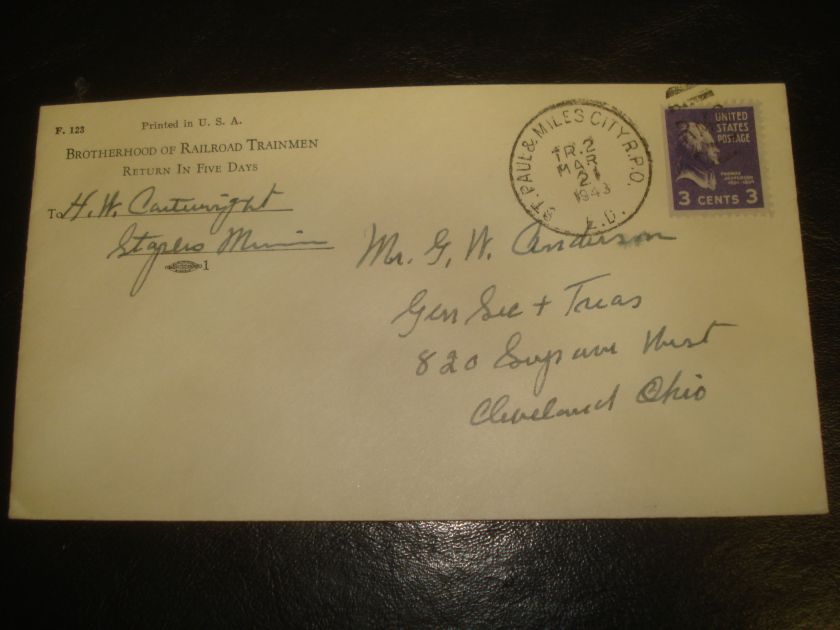 F. 123 Printed in U. S. A.
BROTHERHOOD OF RAILROAD TRAINMEN
RETURN IN FIVE DAYS
To H. W. Cartwright
Staples Minn
1
ST. PAUL & MILES CITY R.P.O.
TR. 2
MAR
21
1943
L.D.
UNITED
STATES
POSTAGE
THOMAS
JEFFERSON
3 CENTS 3
Mr. G. W. Anderson
Gen Sec + Treas
820 West
Cleveland Ohio